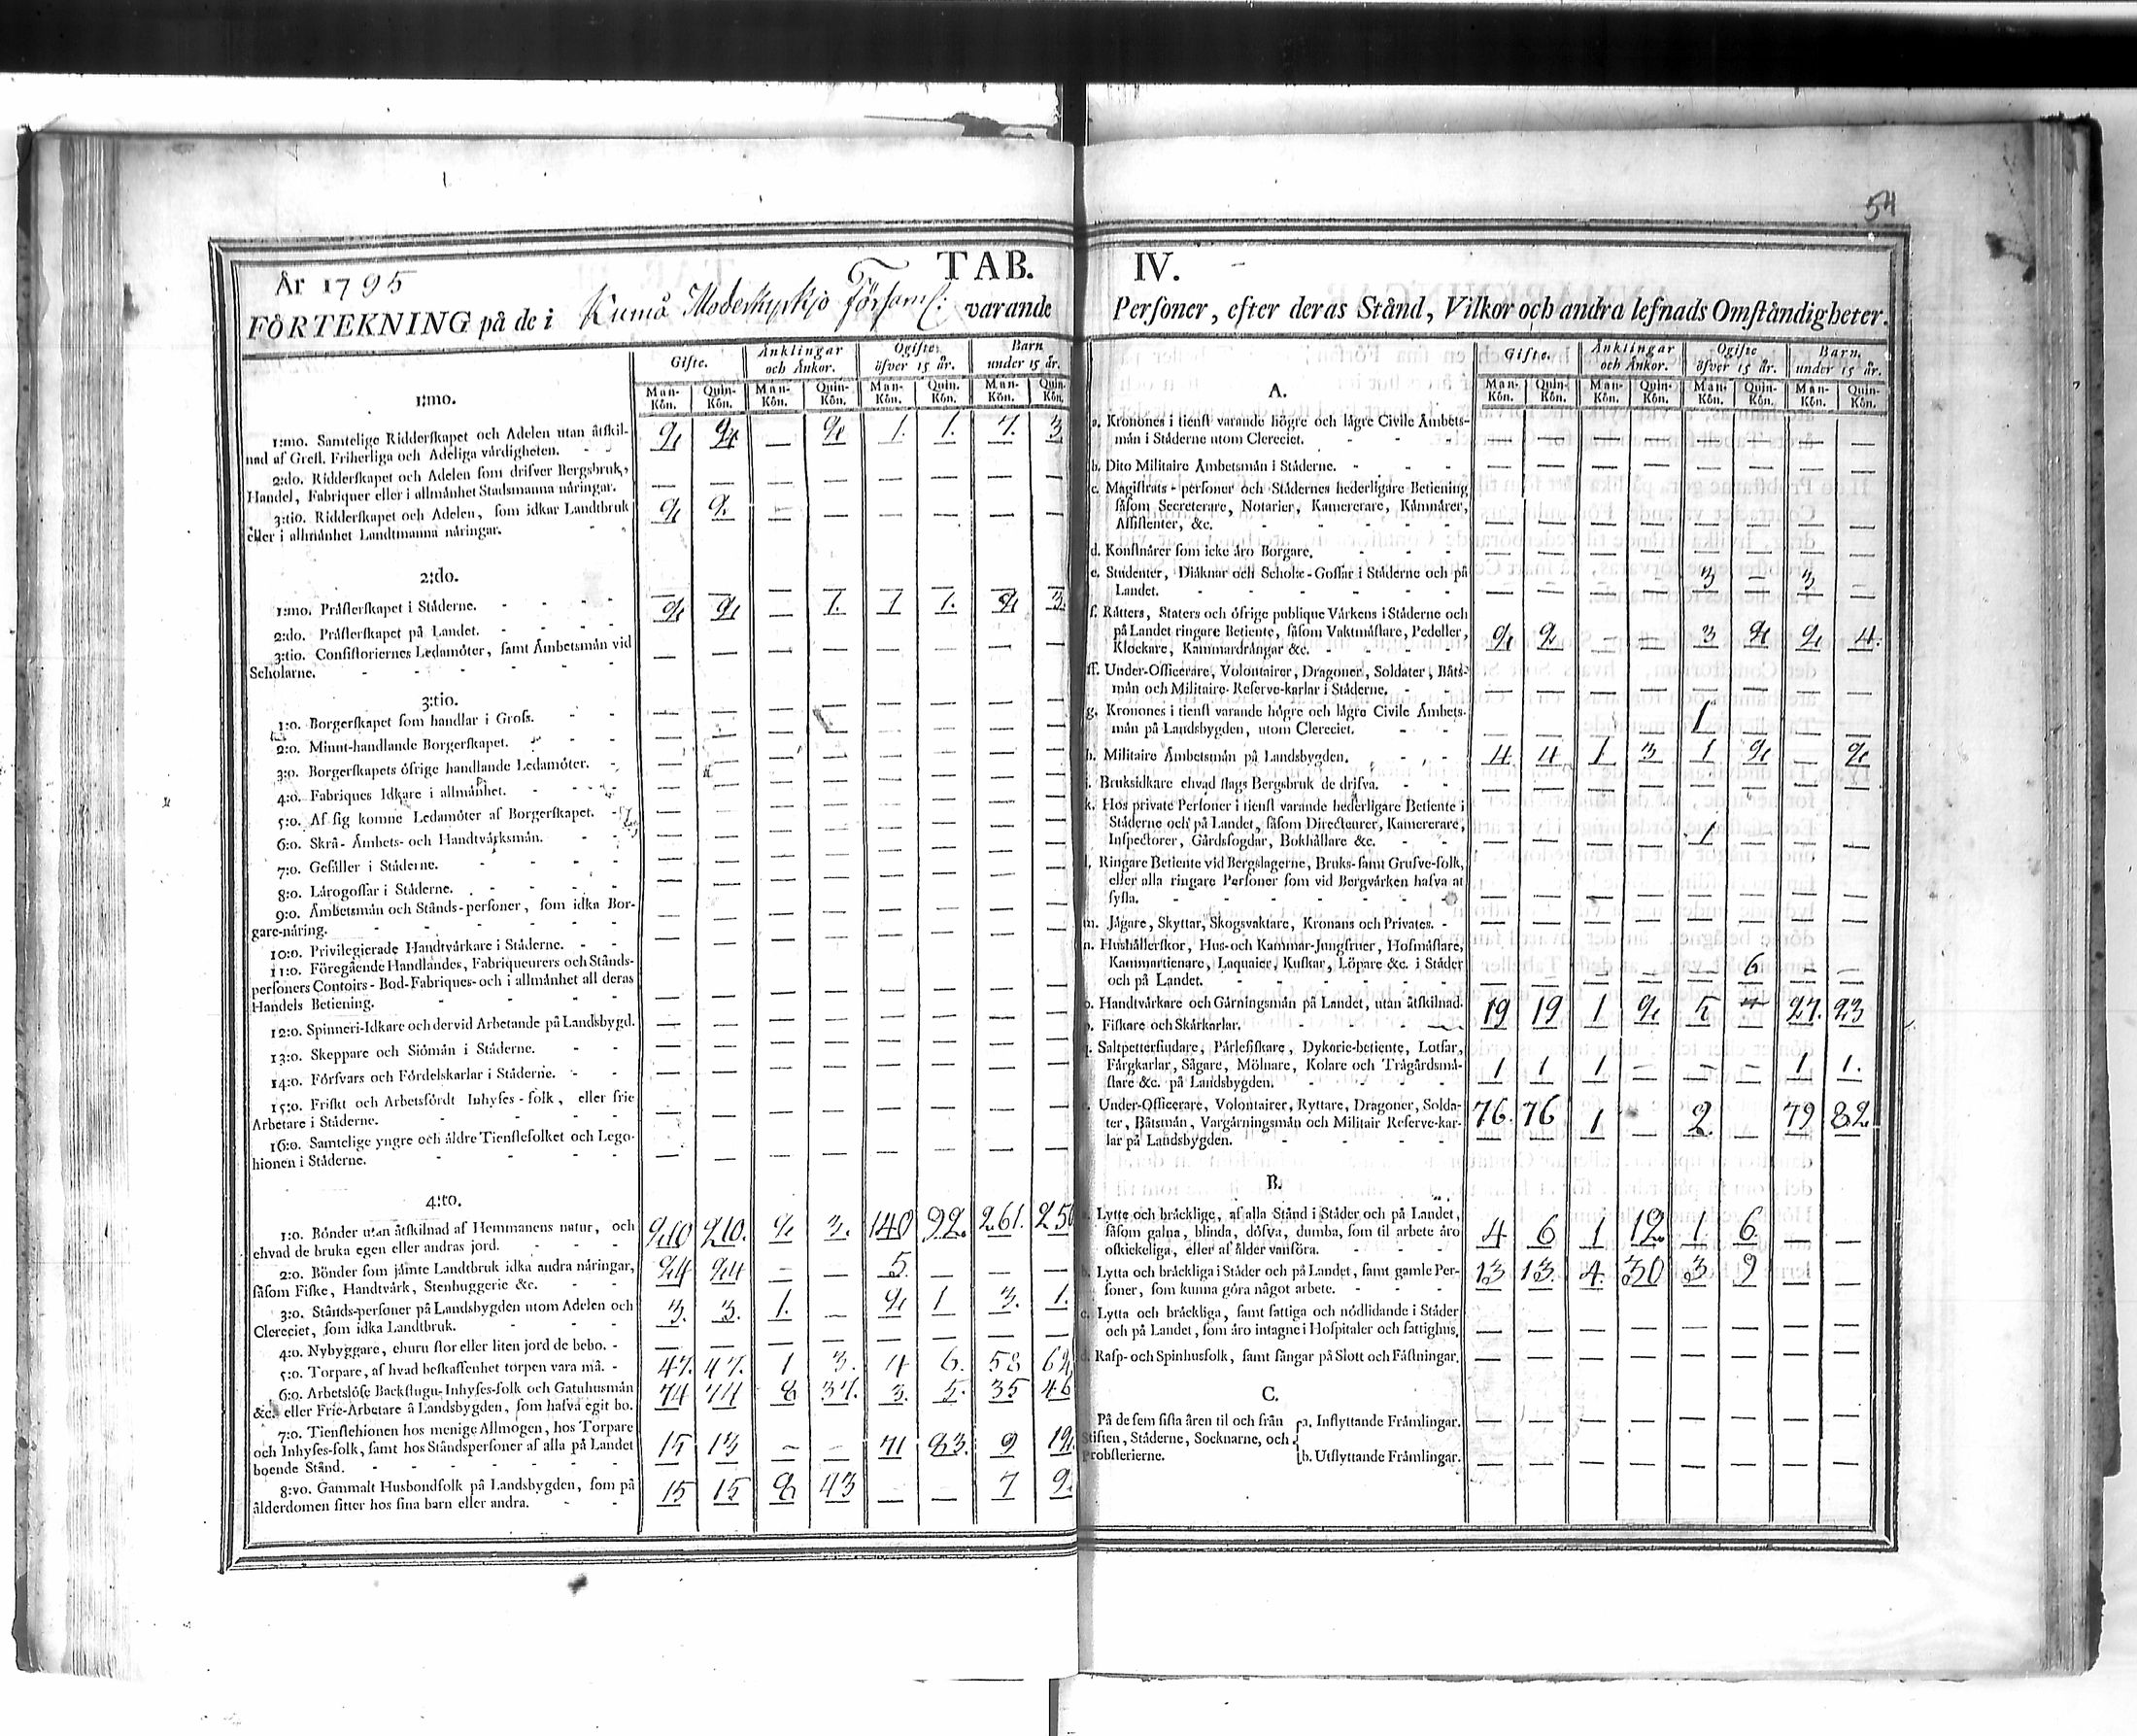 54
År 1795
TAB. IV.
FÖRTEKNING på de i Kumo Moderkyrkjo Församl: varande Personer, efter deras Stånd, Vilkor och andra lefnads Omståndigheter.
Gifte. Änklingar och Änkor. Ogifte öfver 15 år. Barn under 15 år.
Man-Kön. Quin-Kön. Man-Kön. Quin-Kön. Man-Kön. Quin-Kön. Man-Kön. Quin-Kön.
1:mo.
1:mo. Samtelige Ridderskapet och Adelen utan åtskil-
nad af Grefl. Friherliga och Adeliga vårdigheten. 2 2 — 2 1. 1. 7. 3
2:do. Ridderskapet och Adelen som drifver Bergsbruk,
Handel, Fabriquer eller i allmånhet Stadsmanna nåringar. — — — — — — — —
3:tio. Ridderskapet och Adelen, som idkar Landtbruk
eller i allmånhet Landtmanna nåringar. 2 2 — — — — — —
2:do.
1:mo. Pråsterskapet i Ståderne. — — — — — — — —
2:do. Pråsterskapet på Landet. 2 2 — 1. 1 1. 2 3.
3:tio. Consistoriernes Ledamöter, samt Åmbetsmån vid
Scholarne. — — — — — — — —
3:tio.
1:o. Borgerskapet som handlar i Gross. — — — — — — — —
2:o. Minut-handlande Borgerskapet. — — — — — — — —
3:o. Borgerskapets öfrige handlande Ledamöter. — — — — — — — —
4:o. Fabriques Idkare i allmånhet. — — — — — — — —
5:o. Af sig komne Ledamöter af Borgerskapet. — — — — — — — —
6:o. Skrå- Åmbets- och Handtvårksmån. — — — — — — — —
7:o. Gesåller i Ståderne. — — — — — — — —
8:o. Lårogossar i Ståderne. — — — — — — — —
9:o. Åmbetsmån och Stånds-personer, som idka Bor-
gare-nåring. — — — — — — — —
10:o. Privilegierade Handtvårkare i Ståderne. — — — — — — — —
11:o. Föregående Handlandes, Fabriqueurers och Stånds-
personers Contoirs - Bod-Fabriques- och i allmånhet all deras
Handels Betiening. — — — — — — — —
12:o. Spinneri-Idkare och dervid Arbetande på Landsbygd. — — — — — — — —
13:o. Skeppare och Siömån i Ståderne. — — — — — — — —
14:o. Försvars och Fördelskarlar i Ståderne. — — — — — — — —
15:o. Friskt och Arbetsfördt Inhyses-folk, eller frie
Arbetare i Ståderne. — — — — — — — —
16:o. Samtelige yngre och åldre Tienstefolket och Lego-
hionen i Ståderne. — — — — — — — —
4:to.
1:o. Bönder utan åtskilnad af Hemmanens natur, och
ehvad de bruka egen eller andras jord. 210 210. 2 3. 140 92. 261. 250
2:o. Bönder som jåmte Landtbruk idka andra nåringar,
såsom Fiske, Handtvårk, Stenhuggerie &c. 24 24 — — 5. — — —
3:o. Stånds-personer på Landsbygden utom Adelen och
Clereciet, som idka Landtbruk. 3. 3. 1. — 2 1 3. 1.
4:o. Nybyggare, ehuru stor eller liten jord de bebo. — — — — — — — —
5:o. Torpare, af hvad beskaffenhet torpen vara må. 47. 47. 1 3. 4 6. 58 62
6:o. Arbetslöse Backstugu-Inhyses-folk och Gatuhusmån
&c. eller Frie-Arbetare å Landsbygden, som hafva egit bo. 74 74 8 37. 3. 5. 35 46
7:o. Tienstehionen hos menige Allmogen, hos Torpare
och Inhyses-folk, samt hos Ståndspersoner af alla på Landet
boende Stånd. 15 13 — — 71 83. 9 12
8:vo. Gammalt Husbondfolk på Landsbygden, som på
ålderdomen sitter hos sina barn eller andra. 15 15 8 43 — — 7 9.
Gifte. Änklingar och Änkor. Ogifte öfver 15 år. Barn. under 15 år.
Man-Kön. Quin-Kön. Man-Kön. Quin-Kön. Man-Kön. Quin-Kön. Man-Kön. Quin-Kön.
A.
a. Kronones i tienst varande högre och lågre Civile Åmbets-
mån i Ståderne utom Clereciet. — — — — — — — —
b. Dito Militaire Åmbetsmån i Ståderne. — — — — — — — —
c. Magistrats - personer och Stådernes hederligare Betiening
såsom Secreterare, Notarier, Kamererare, Kåmnårer,
Assistenter, &c. — — — — — — — —
d. Konstnårer som icke åro Borgare. — — — — — — — —
e. Studenter, Diåknar och Schole-Gossar i Ståderne och på
Landet. — — — — 3 — 3 —
f. Råtters, Staters och öfrige publique Vårkens i Ståderne och
på Landet ringare Betiente, såsom Vaktmåstare, Pedeller,
Klockare, Kammardrångar &c. 2 2 — — 3 2 2 4.
ff. Under-Officerare, Volontairer, Dragoner, Soldater, Båts-
mån och Militaire- Reserve-karlar i Ståderne. — — — — — — — —
g. Kronones i tienst varande högre och lågre Civile Åmbets-
mån på Landsbygden, utom Clereciet. — — — — 1 — — —
h. Militaire Åmbetsmån på Landsbygden. 4 4 1 3 1 2 — 2
i. Bruksidkare ehvad slags Bergsbruk de drifva. — — — — — — — —
k. Hos private Personer i tienst varande hederligare Betiente i
Ståderne och på Landet, såsom Directeurer, Kamererare,
Inspectorer, Gårdsfogdar, Bokhållare &c. — — — — 1 — — —
l. Ringare Betiente vid Bergslagerne, Bruks- samt Grufve-folk,
eller alla ringare Personer som vid Bergvårken hafva at
sysla. — — — — — — — —
m. Jågare, Skyttar, Skogsvaktare, Kronans och Privates. — — — — — — — —
n. Hushållerskor, Hus- och Kammar-Jungfruer, Hofmåstare,
Kammartienare, Laquaier, Kuskar, Löpare &c. i Ståder
och på Landet. — — — — — 6 — —
o. Handtvårkare och Gårningsmån på Landet, utan åtskilnad. 19 19 1 2 5 27. 23
p. Fiskare och Skårkarlar.
q. Saltpettersiudare, Pårlefiskare, Dykerie-betiente, Lotsar,
Fårgkarlar, Sågare, Mölnare, Kolare och Trågårdsmå-
stare &c. på Landsbygden. 1 1 1 — — — 1 1.
r. Under-Officerare, Volontairer, Ryttare, Dragoner, Solda-
ter, Båtsmån, Vargårningsmån och Militair Reserve-kar-
lar på Landsbygden. 76. 76 1 — 2. 79 82
B.
a. Lytte och bråcklige, af alla Stånd i Ståder och på Landet,
såsom galna, blinda, döfva, dumba, som til arbete åro
oskickeliga, eller af ålder vanföra. 4 6 1 12 1 6. — —
b. Lytta och bråckliga i Ståder och på Landet, samt gamle Per-
soner, som kunna göra något arbete. 13 13 4. 30 3 9 — —
c. Lytta och bråckliga, samt fattiga och nödlidande i Ståder
och på Landet, som åro intagne i Hospitaler och fattighus. — — — — — — — —
d. Rasp- och Spinhusfolk, samt fångar på Slott och Fåstningar. — — — — — — — —
C.
På de fem sista åren til och från
Stiften, Ståderne, Socknarne, och
Probsterierne.
a. Inflyttande Fråmlingar. — — — — — — — —
b. Utflyttande Fråmlingar. — — — — — — — —